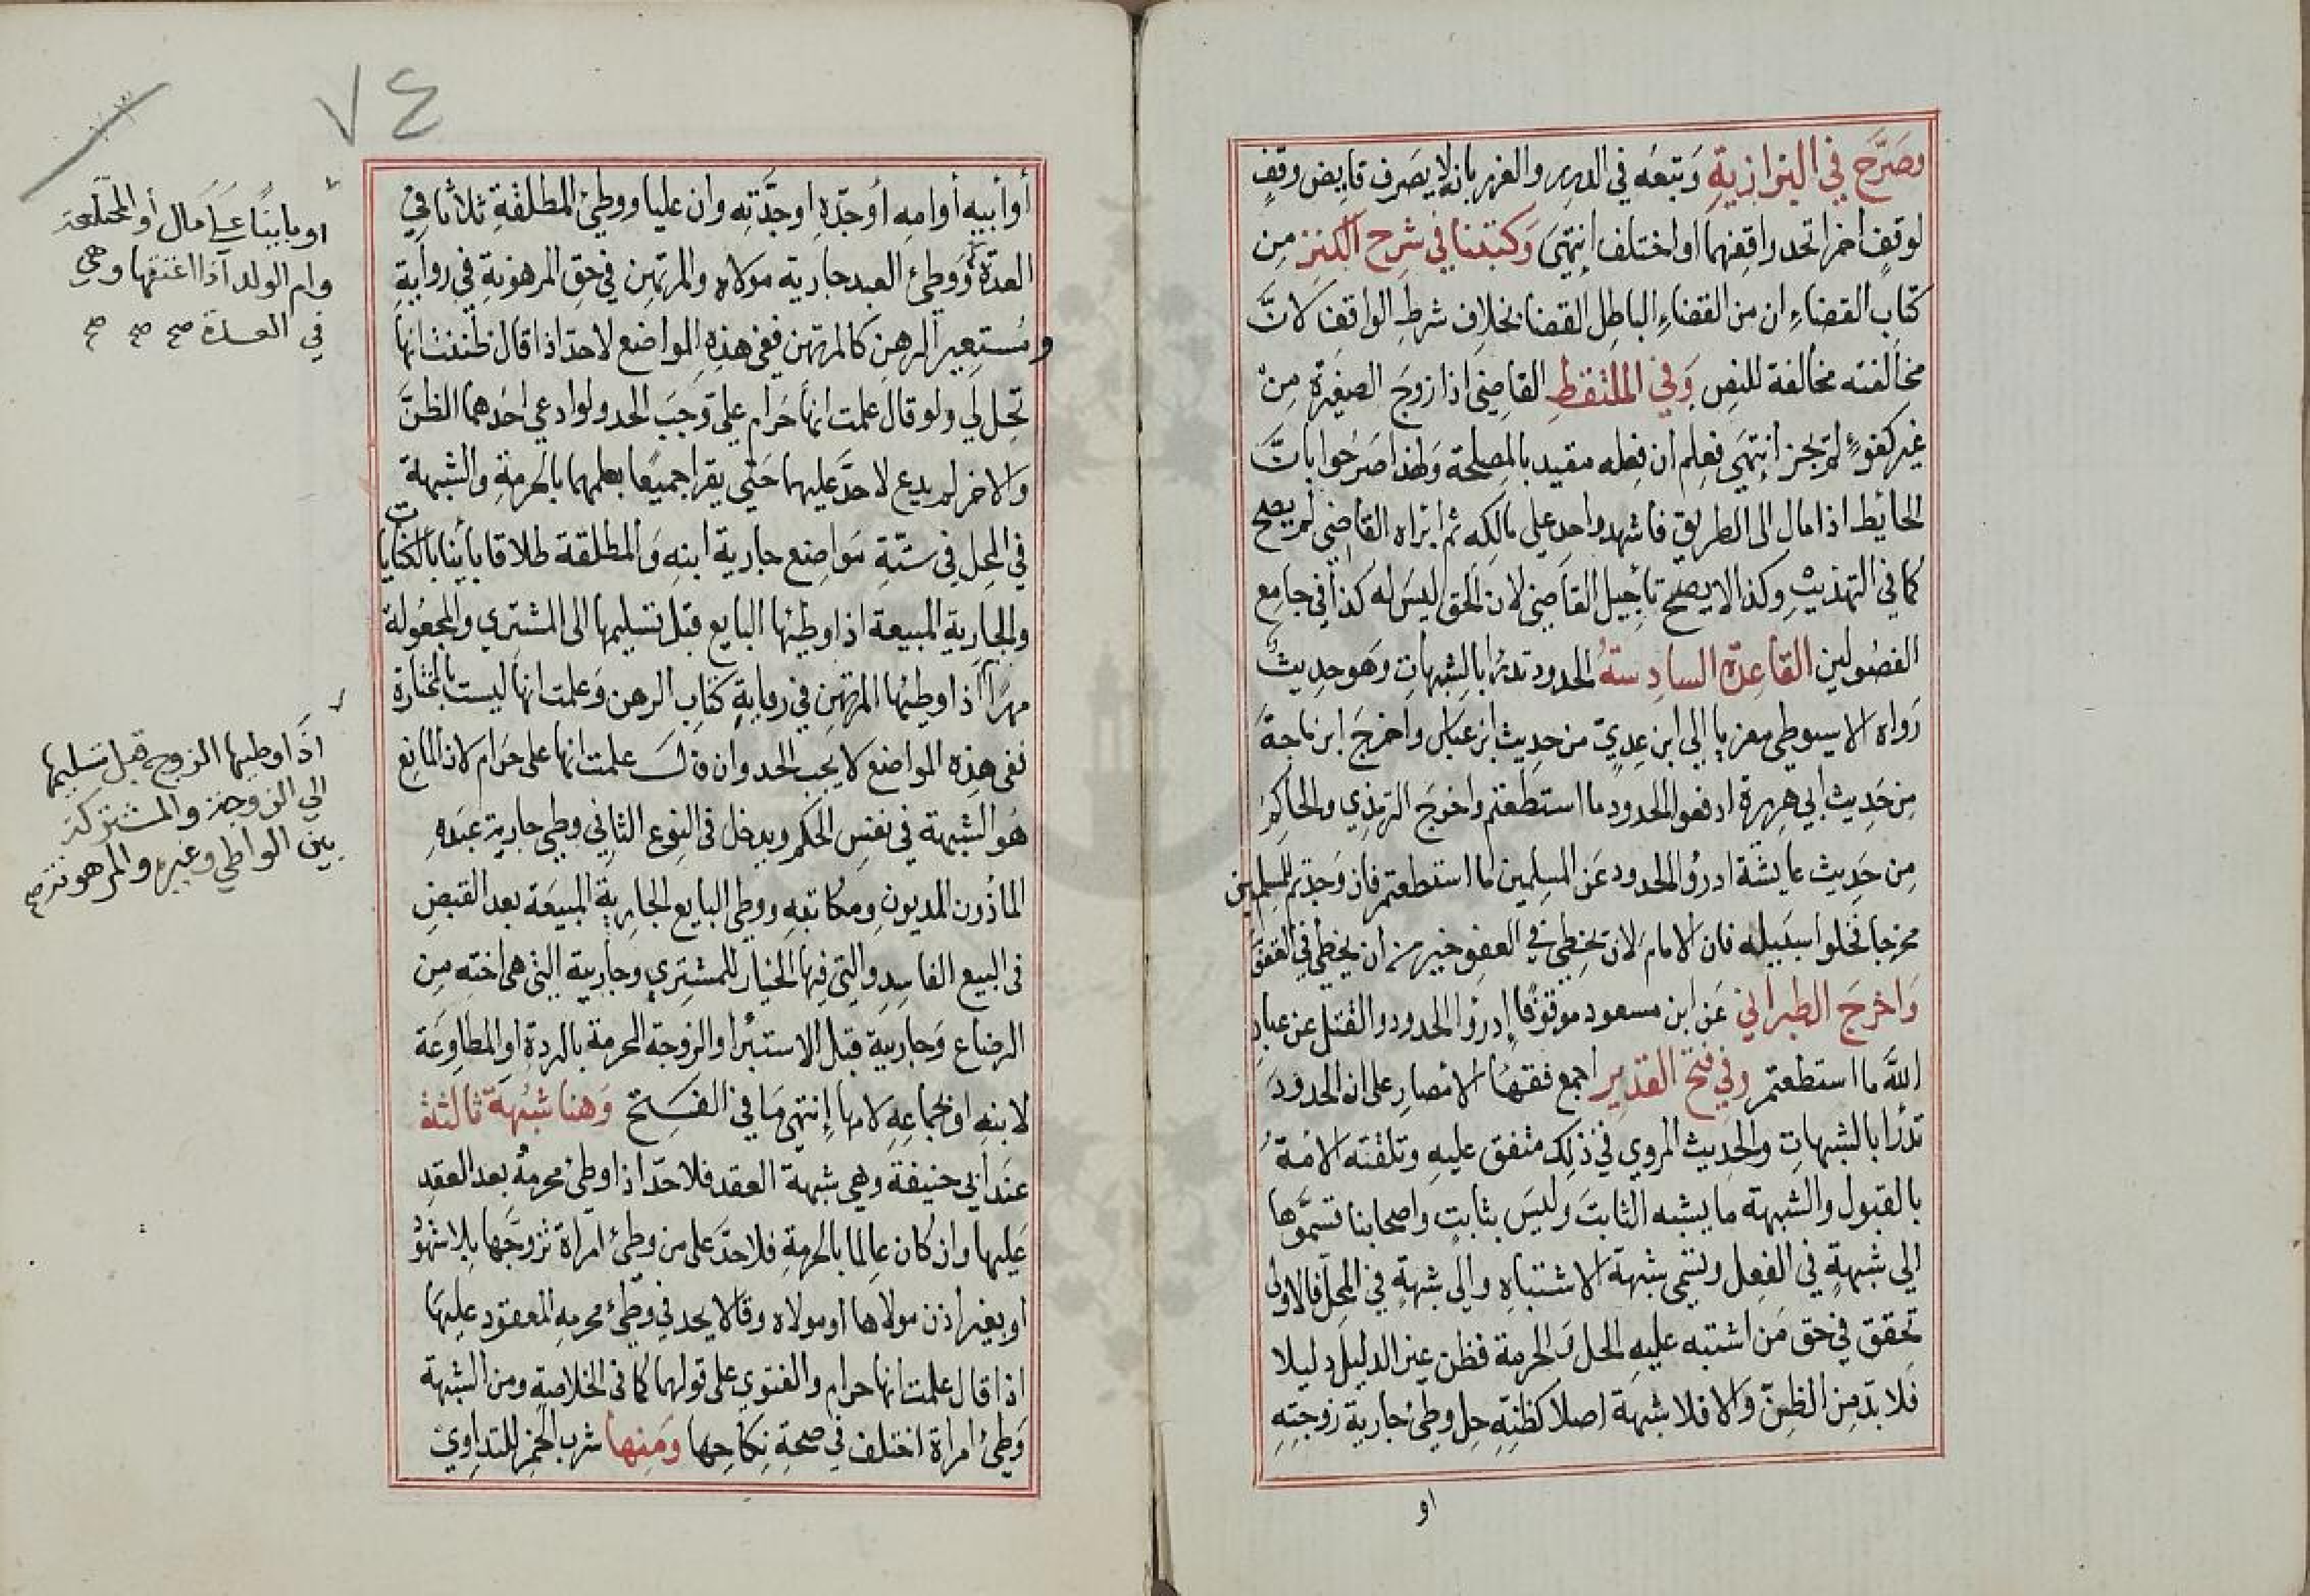 وصرح في البزازية وتبعه في الدرر والغرر بانه لا يصرف فايض وقف
لوقف اخر اتحد واقفهما او اختلف انتهى وكتبنا في شرح الكنز من
كتاب القضاء ان من القضاء الباطل القضا بخلاف شرط الواقف لان
مخالفته مخالفة للنص وفي الملتقط القاضي اذا زوج الصغيرة من
غير كفوء لم يجز انتهى فعلم ان فعله مقيد بالمصلحة ولهذا صرحوا بان
الحائط اذا مال الى الطريق فاشهد واحد على مالكه ثم ابراه القاضي لم يصح
كما في التهذيب وكذا لا يصح تأجيل القاضي لان الحق ليس له كذا في جامع
الفصولين القاعدة السادسة الحدود تدرأ بالشبهات وهو حديث
رواه الاسيوطي معزيا الى ابن عدي من حديث ابن عباس واخرج ابن ماجة
من حديث ابي هريرة ادفعوا الحدود ما استطعتم واخرج الترمذي والحاكم
من حديث عايشة ادرؤا الحدود عن المسلمين ما استطعتم فان وجدتم للمسلمين
مخرجا فخلوا سبيله فان الامام لان يخطئ في العفو خير من أن يخطئ في العقوبة
واخرج الطبراني عن ابن مسعود موقوفا إدرؤا الحدود والقتل عن عباد
الله ما استطعتم وفي فتح القدير اجمع فقهاء الامصار على ان الحدود
تدرأ بالشبهات والحديث المروي في ذلك متفق عليه وتلقته الامة
بالقبول والشبهة ما يشبه الثابت وليس بثابت واصحابنا قسموها
الى شبهة في الفعل وتسمى شبهة الاشتباه والى شبهة في المحل فالاولى
تحقق في حق من اشتبه عليه الحل والحرمة فظن غير الدليل دليلا
فلا بد من الظن والا فلا شبهة اصلا كظنه حل وطئ جارية زوجته
او
٧٤
أو أبيه أو امه أو جده او جدته وان عليا ووطئ المطلقة ثلاثا في
العدة ووطئ العبد جارية مولاه والمرتهن في حق المرهونة في رواية
ومستعير الرهن كالمرتهن ففي هذه المواضع لا حد اذا قال ظننت انها
تحل لي ولو قال علمت انها حرام علي وجب الحد ولو ادعى احدهما الظن
والاخر لم يدع لا حد عليهما حتى يقرا جميعا بعلمهما بالحرمة والشبهة
في المحل في ستة مواضع جارية ابنه والمطلقة طلاقا بائنا بالكنايات
والجارية المبيعة اذا وطئها البايع قبل تسليمها الى المشتري والمجعولة
مهرا اذا وطئها المرتهن في رواية كتاب الرهن وعلمت انها ليست بالمختارة
ففي هذه المواضع لا يجب الحد وان قال علمت انها على حرام لان المانع
هو الشبهة في نفس الحكم ويدخل في النوع الثاني وطئ جارية عبده
المأذون المديون ومكاتبه ووطئ البايع الجارية المبيعة بعد القبض
في البيع الفاسد والتي فيها الخيار للمشتري وجارية التي هي اخته من
الرضاع وجارية قبل الاستبرا والزوجة المحرمة بالردة او المطاوعة
لابنه او بجماعه لامها إنتهى ما في الفتح وهنا شبهة ثالثة
عند أبي حنيفة وهي شبهة العقد فلا حد اذا وطئ محرمه بعد العقد
عليها وان كان عالما بالحرمة فلا حد على من وطئ امراة تزوجها بلا شهود
او بغير اذن مولاها او مولاه وقالا يحد في وطئ محرمه المعقود عليها
اذا قال علمت انها حرام والفتوى على قولهما كما في الخلاصة ومن الشبهة
وطئ امراة اختلف في صحة نكاحها ومنها شرب الخمر للتداوي
او باينا على مال أو المختلعة
وام الولد اذا اعتقها وهي
في العدة صح صح صح
اذا وطيها الزوج قبل تسليمها
الى الزوجة والمشتركة
بين الواطي وغيره والمرهونة صح